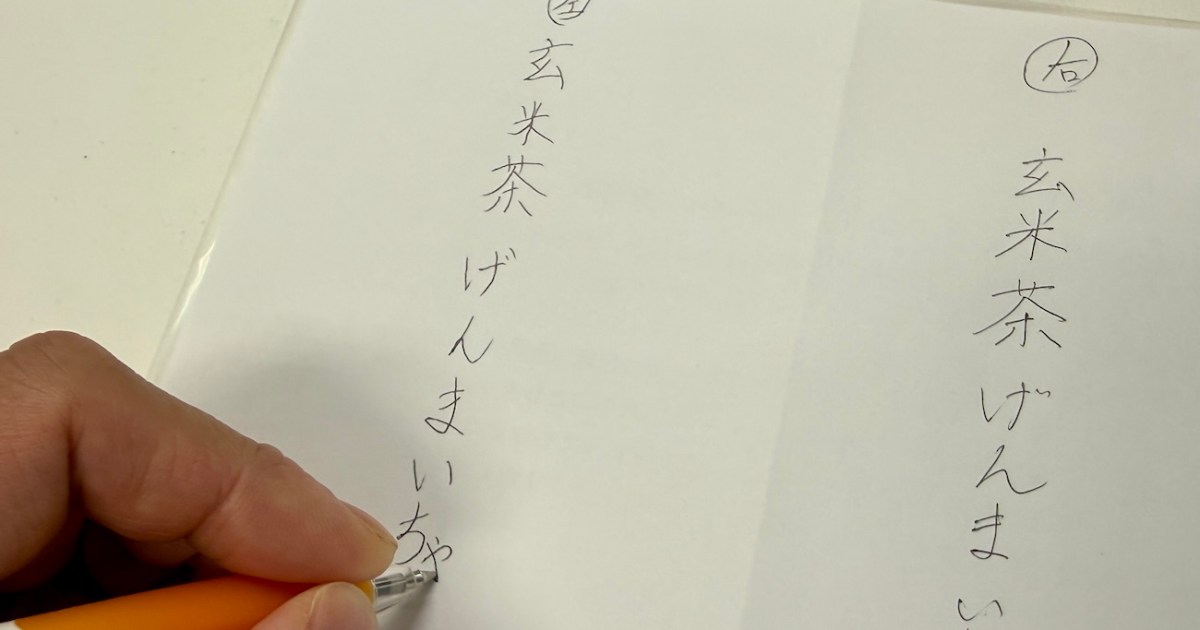 右
玄米茶げんまい
左
玄米茶げんまいちゃ